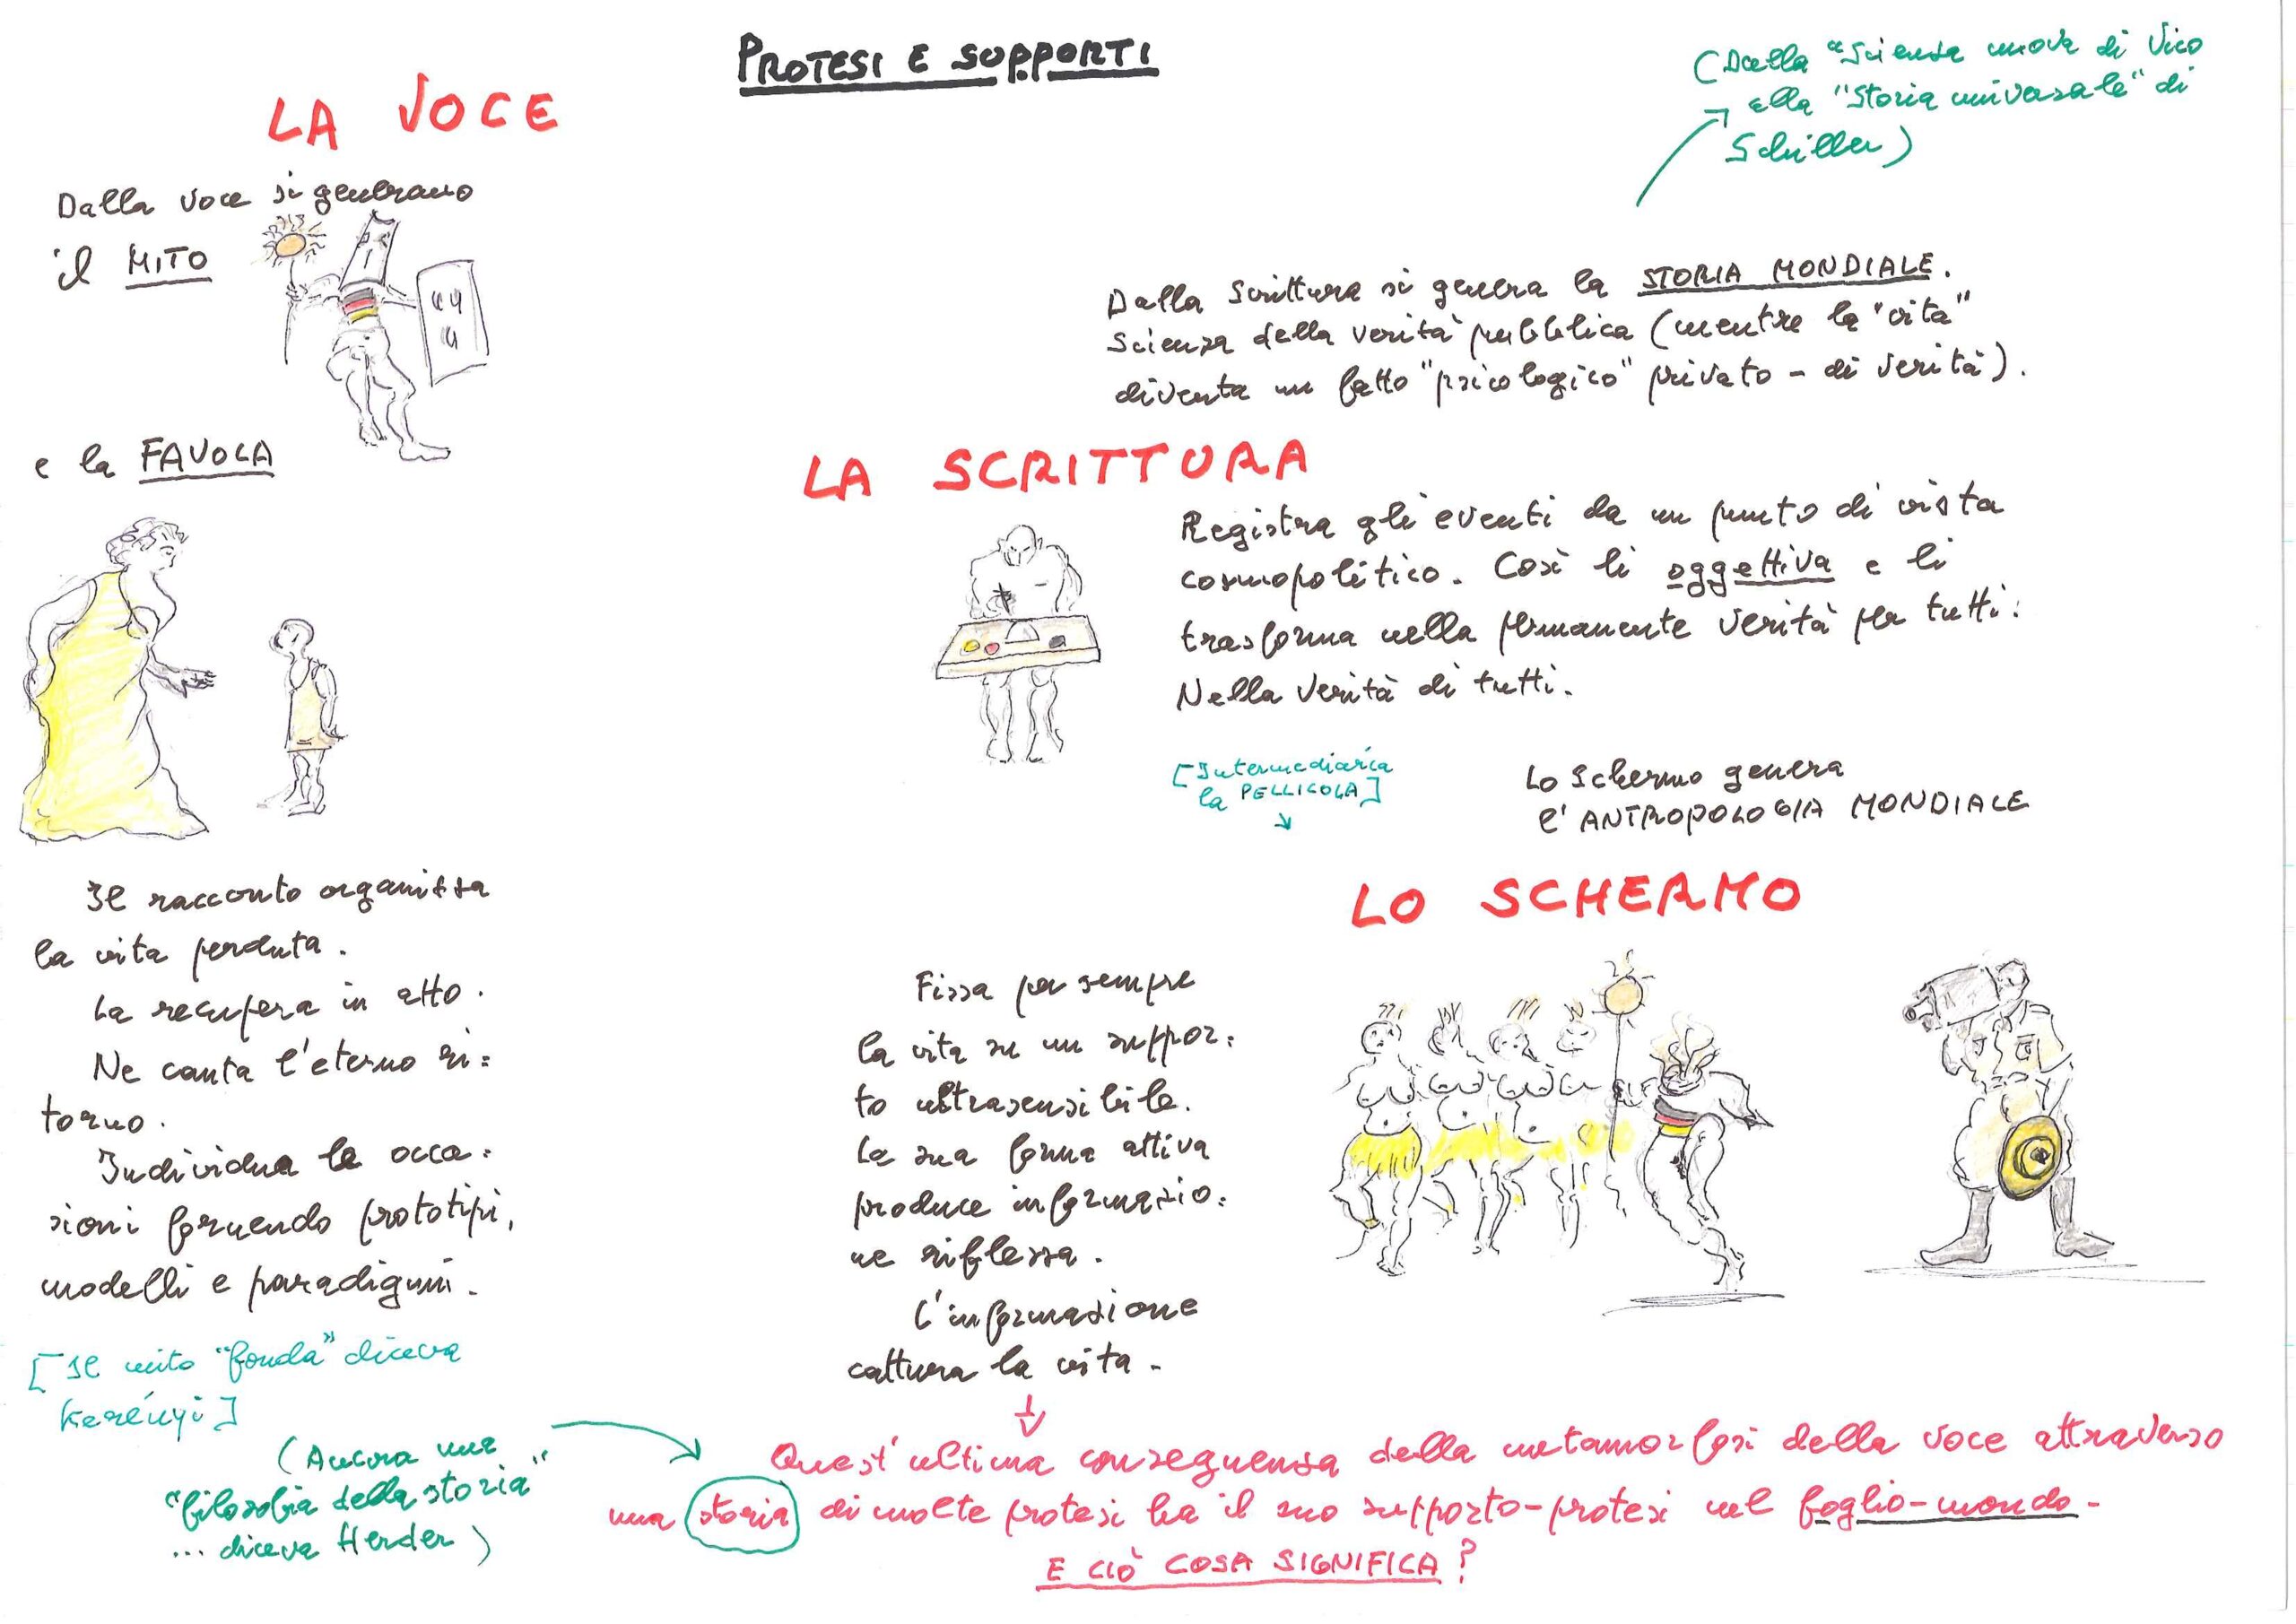 PROTESI E SUPPORTI
LA VOCE
Dalla voce si generano
il MITO
e la FAVOLA
Il racconto organizza
la vita perduta.
La recupera in atto.
Ne canta l'eterno ri=
torno.
Individua le occa=
sioni fornendo prototipi,
modelli e paradigmi.
[Il mito "fonda" diceva
Kerényi]
(Ancora una
"filosofia della storia"
... diceva Herder)
(Dalla "Scienza nuova di Vico
alla "Storia universale" di
Schiller)
Dalla Scrittura si genera la STORIA MONDIALE.
Scienza della verità pubblica (mentre la "vita"
diventa un fatto "psicologico" privato - di verità).
LA SCRITTURA
Registra gli eventi da un punto di vista
cosmopolitico. Così li oggettiva e li
trasforma nella permanente verità per tutti:
Nella verità di tutti.
[Intermediaria
la PELLICOLA]
Lo Schermo genera
l'ANTROPOLOGIA MONDIALE
LO SCHERMO
Fissa per sempre
la vita su un suppor=
to ultrasensibile.
La sua forma attiva
produce informazio=
ne riflessa.
L'informazione
cattura la vita.
Quest'ultima conseguenza della metamorfosi della voce attraverso
una storia di molte protesi ha il suo supporto-protesi nel foglio-mondo.
E CIÒ COSA SIGNIFICA?